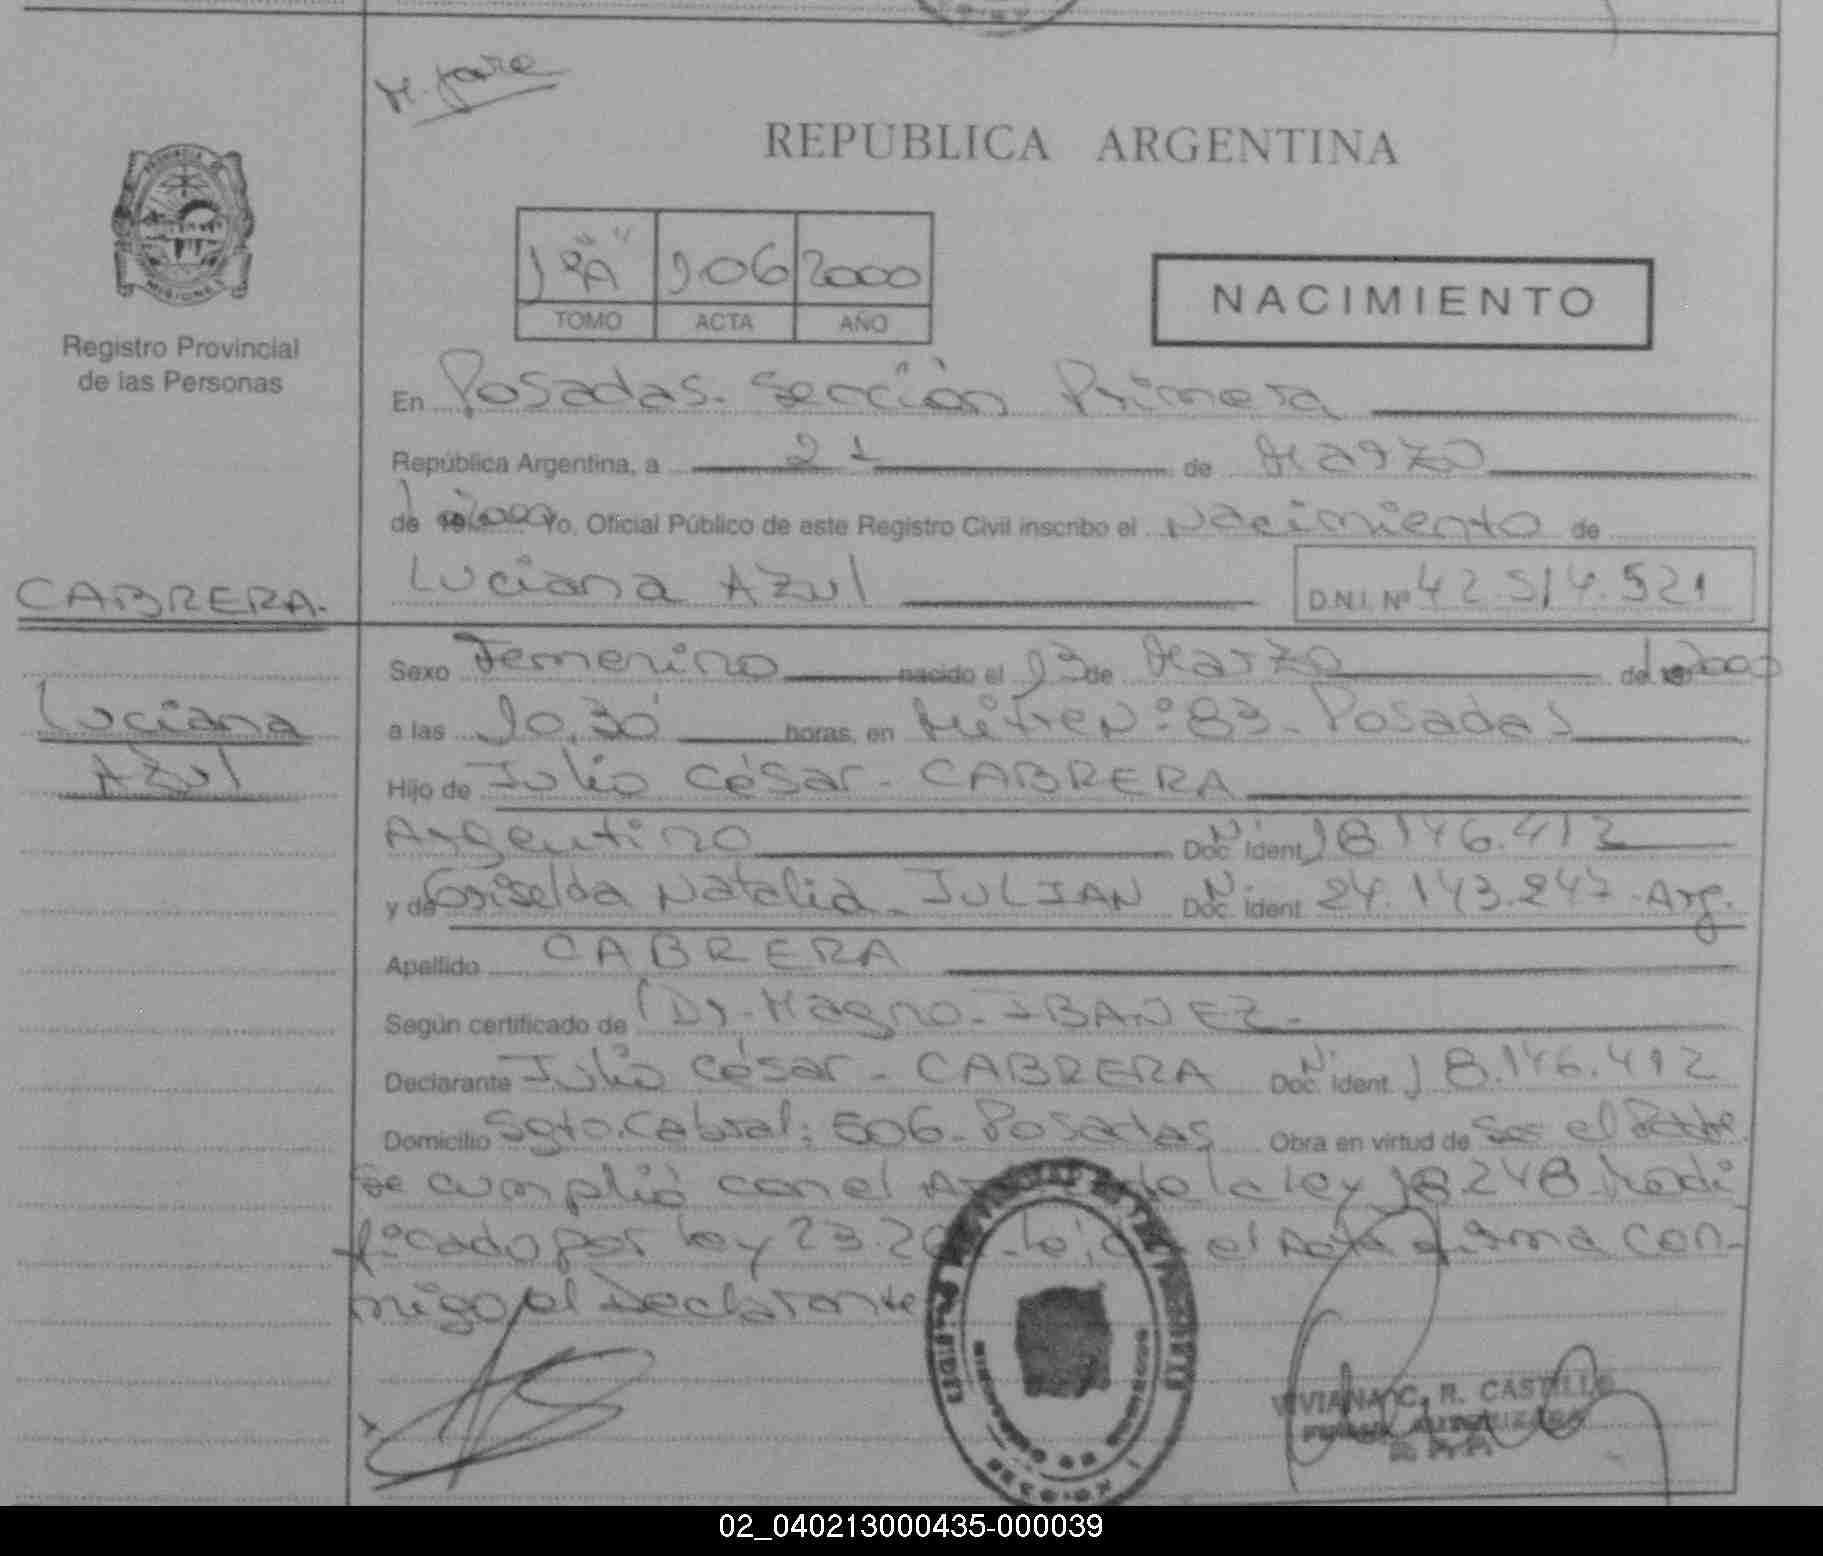 REPUBLICA ARGENTINA
106 2000
TOMO ACTA AÑO
NACIMIENTO
Registro Provincial
de las Personas
En Posadas. Sección Primera
República Argentina, a 21 de Marzo
de 2000 Yo, Oficial Público de este Registro Civil inscribo el Nacimiento de
Luciana Azul D.N.I. Nº 42.514.521
CABRERA.
Sexo Femenino nacido el 13 de Marzo del 2000
Luciana
a las 10,30 horas, en Mitre Nº 83 - Posadas
Azul
Hijo de Julio César - CABRERA
Argentino Doc. Ident. 18.146.412
y de Griselda Natalia - JULIAN Doc. Ident. 24.143.247 - Arg.
Apellido CABRERA
Según certificado de Dr. Magno - IBAÑEZ -
Declarante Julio César - CABRERA Doc. Ident. 18.146.412
Domicilio Sgto. Cabral: 506 - Posadas Obra en virtud de Ser el Padre.
Se cumplió con el de la ley 18.248 Modi
ficado por ley el Acta firma con-
migo el Declarante
VIVIANA C. R. CASTILLO
02_040213000435-000039